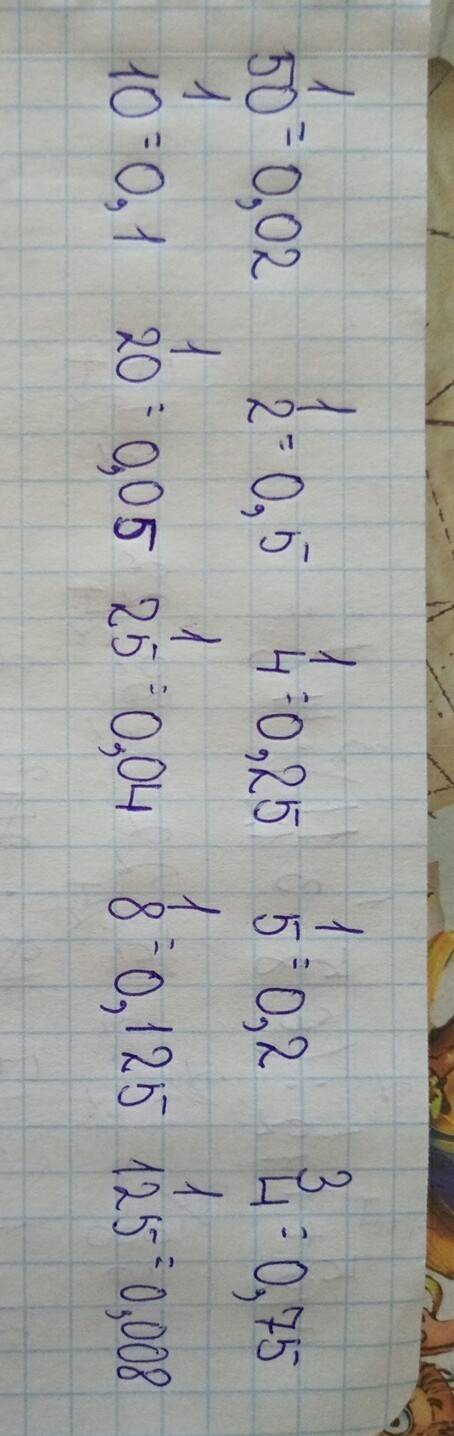 1/50 = 0,02 1/2 = 0,5 1/4 = 0,25 1/5 = 0,2 3/4 = 0,75
1/10 = 0,1 1/20 = 0,05 1/25 = 0,04 1/8 = 0,125 1/125 = 0,008